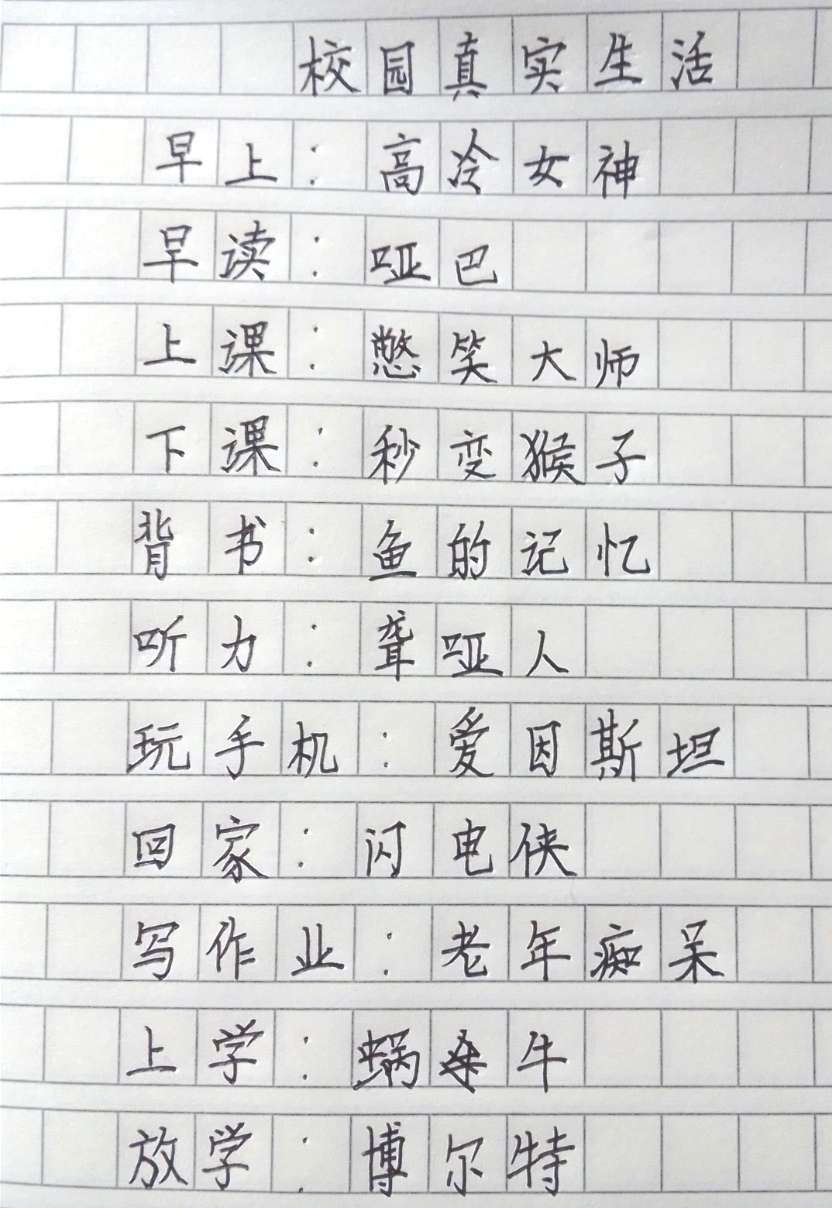 校园真实生活
早上：高冷女神
早读：哑巴
上课：憋笑大师
下课：秒变猴子
背书：鱼的记忆
听力：聋哑人
玩手机：爱因斯坦
回家：闪电侠
写作业：老年痴呆
上学：蜗牛
放学：博尔特